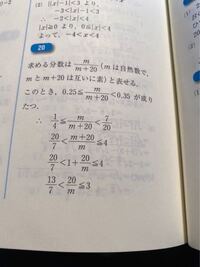 (2) ||x|−1|<3 より,
−3<|x|−1<3
∴ −2<|x|<4
|x|≧0 より, 0≦|x|<4
よって, −4<x<4
20
求める分数は m/(m+20) (m は自然数で,
m と m+20 は互いに素) と表せる。
このとき, 0.25≦m/(m+20)<0.35 が成り
たつ.
∴ 1/4≦m/(m+20)<7/20
20/7<(m+20)/m≦4
20/7<1+20/m≦4
13/7<20/m≦3